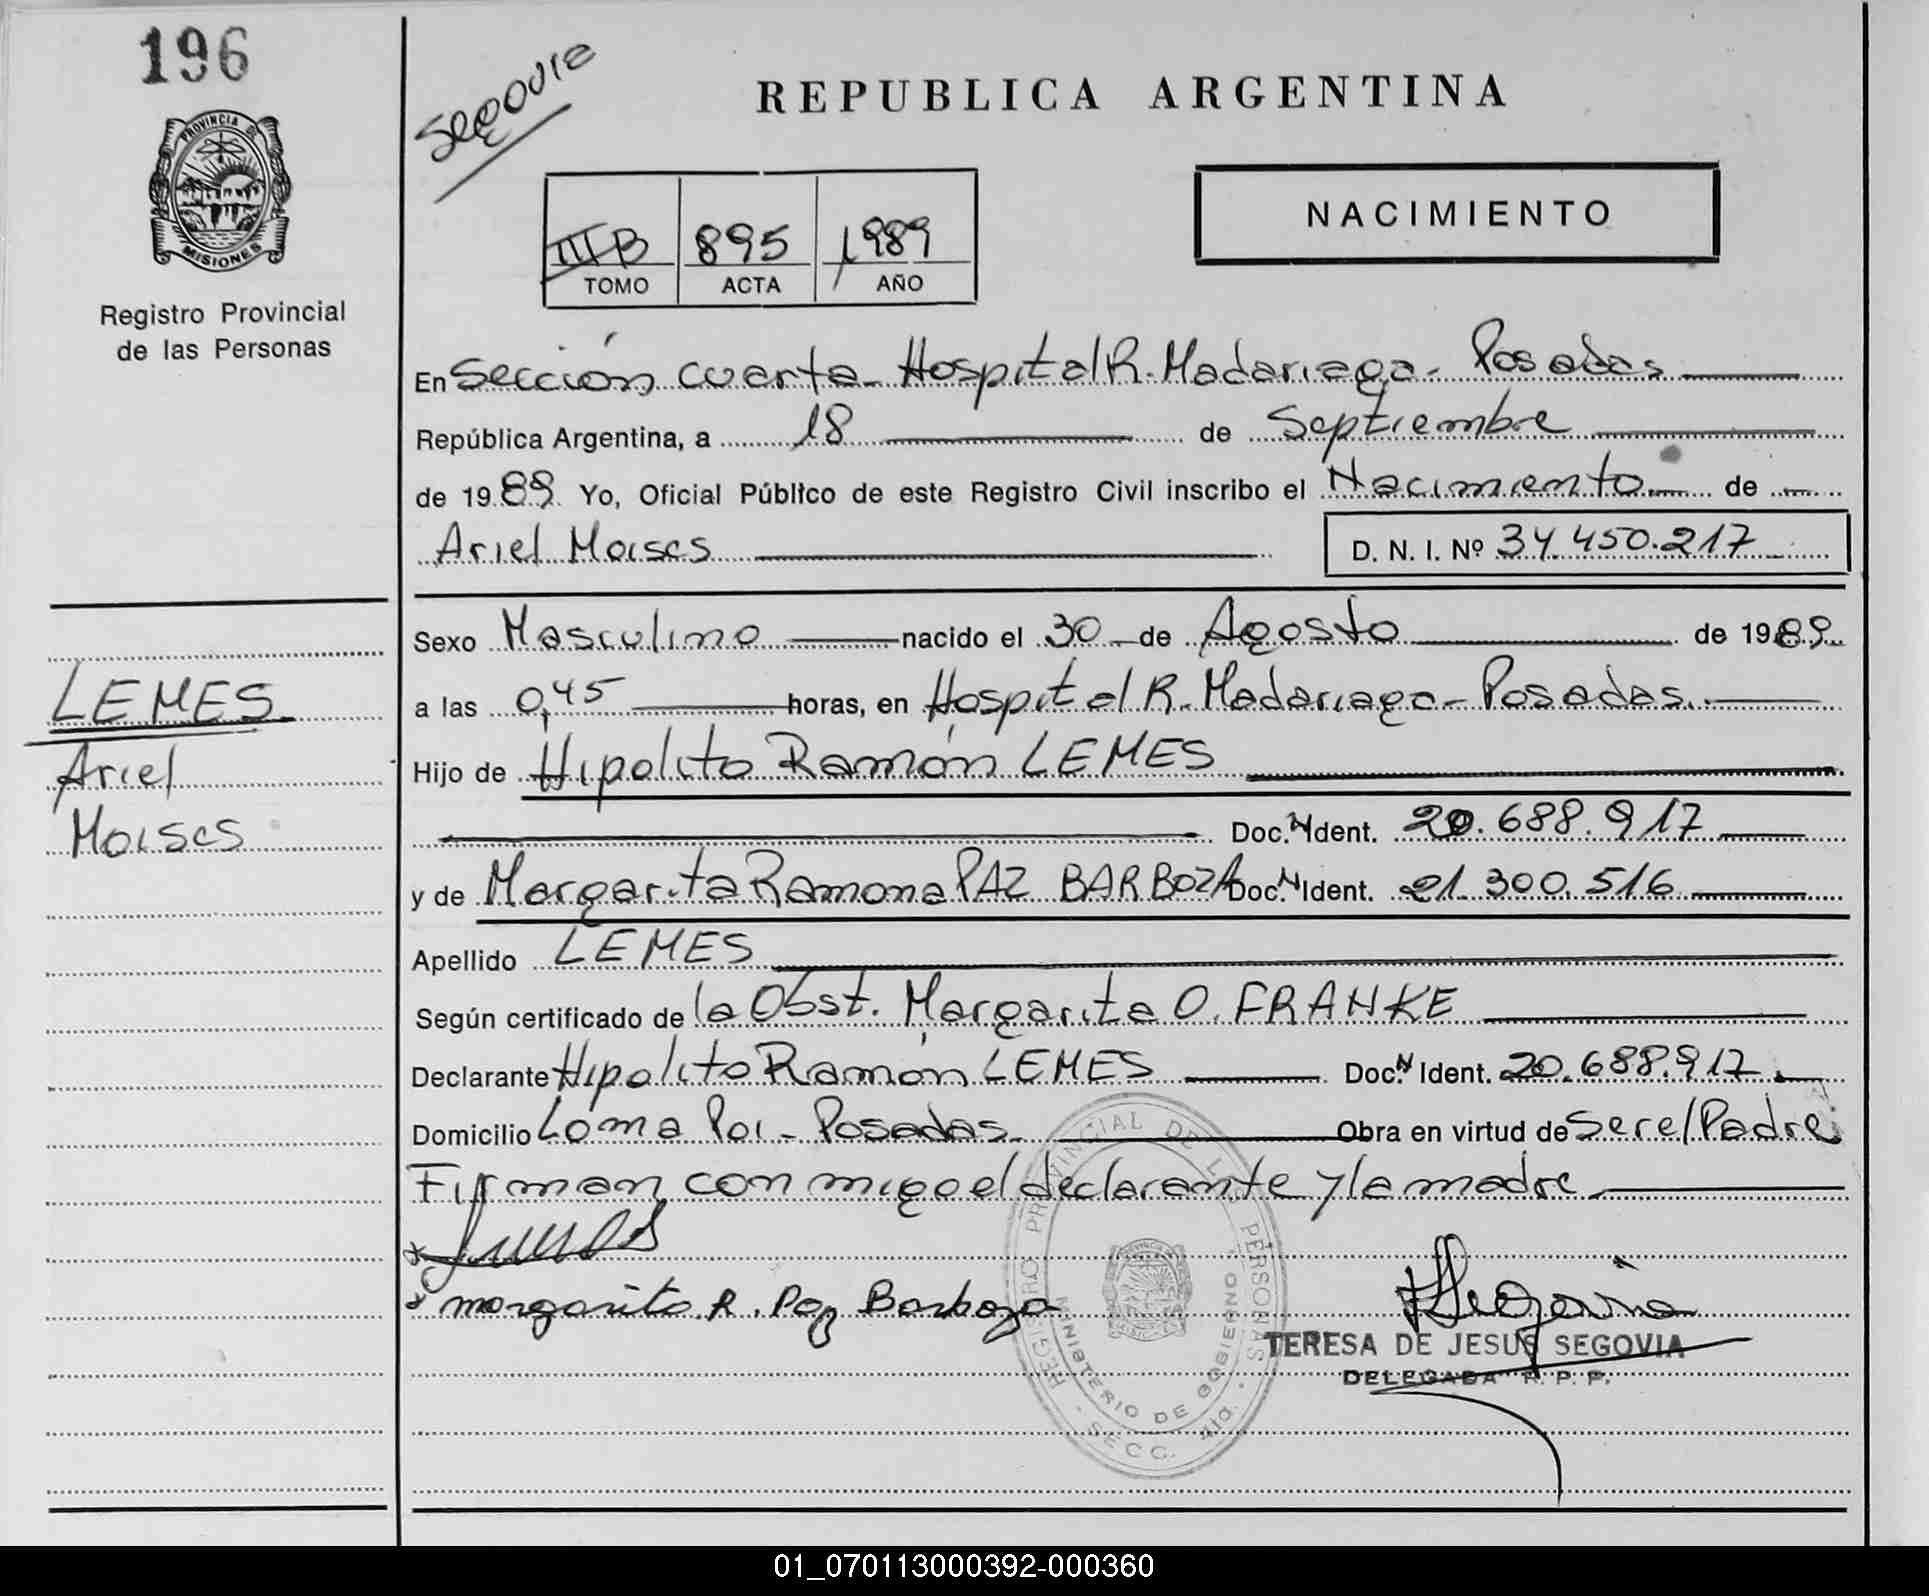 196
PROVINCIA DE
MISIONES
Registro Provincial
de las Personas
LEMES
Ariel
Moises
Segovia
REPUBLICA ARGENTINA
IIIB 895 1989
TOMO ACTA AÑO
NACIMIENTO
En Sección cuarta - Hospital R. Madariaga - Posadas
República Argentina, a 18 de Septiembre
de 1989 Yo, Oficial Público de este Registro Civil inscribo el Nacimiento de
Ariel Moises D. N. I. Nº 34.450.217
Sexo Masculino nacido el 30 de Agosto de 1989
a las 0,45 horas, en Hospital R. Madariaga - Posadas.
Hijo de Hipolito Ramón LEMES
Doc. N Ident. 20.688.917
y de Margarita Ramona PAZ BARBOZA Doc. N Ident. 21.300.516
Apellido LEMES
Según certificado de la Obst. Margarita O. FRANKE
Declarante Hipolito Ramón LEMES Doc. N Ident. 20.688.917
Domicilio Loma Poi - Posadas. Obra en virtud de Ser el Padre
Firman conmigo el declarante y la madre
x Lemes
x margarita. R. Paz Barboza
Segovia
TERESA DE JESUS SEGOVIA
DELEGADA R. P. P.
REGISTRO PROVINCIAL DE LAS PERSONAS
MINISTERIO DE GOBIERNO
- SECC. 4ta. -
01_070113000392-000360